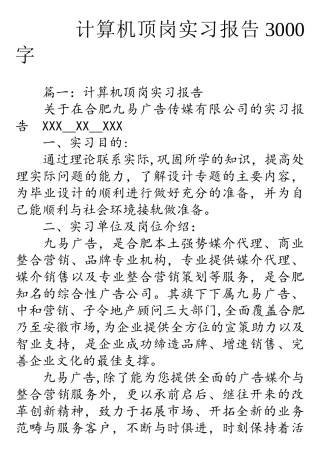 计算机顶岗实习报告 3000
字
篇一：计算机顶岗实习报告
关于在合肥九易广告传媒有限公司的实习报
告　XXX__XX__XXX
一、实习目的:
通过理论联系实际,巩固所学的知识，提高处
理实际问题的能力，了解设计专题的主要内容，
为毕业设计的顺利进行做好充分的准备，并为自
己能顺利与社会环境接轨做准备。
二、实习单位及岗位介绍:
九易广告，是合肥本土强势媒介代理、商业
整合营销、品牌专业机构，专业提供媒介代理、
媒介销售以及专业整合营销策划等服务，是合肥
知名的综合性广告公司。其旗下下属九易广告、
中和营销、子令地产顾问三大部门,全面覆盖合肥
乃至安徽市场,为企业提供全方位的宣策助力以及
智业支持，是企业成功缔造品牌、增速销售、完
善企业文化的最佳支撑。
九易广告,除了能为您提供全面的广告媒介与
整合营销服务外，更以承前启后、继往开来的改
革创新精神，致力于拓展市场、开拓全新的业务
范畴与服务客户，不断与时俱进，时刻保持着活